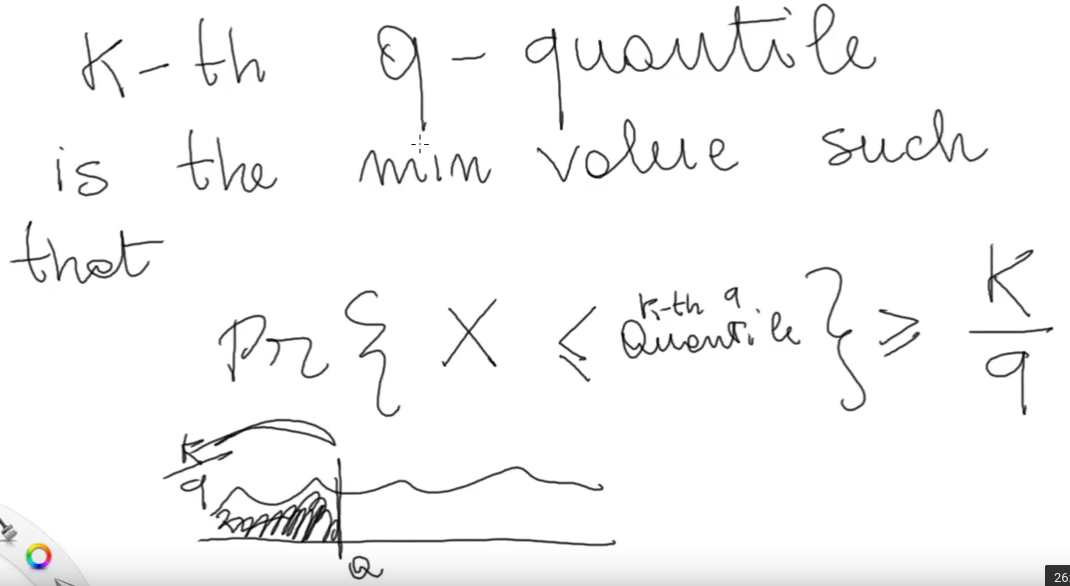 K-th q-quantile
is the min value such
that
Pr { X ≤ K-th q Quantile } ≥ K/q
K/q
Q
26